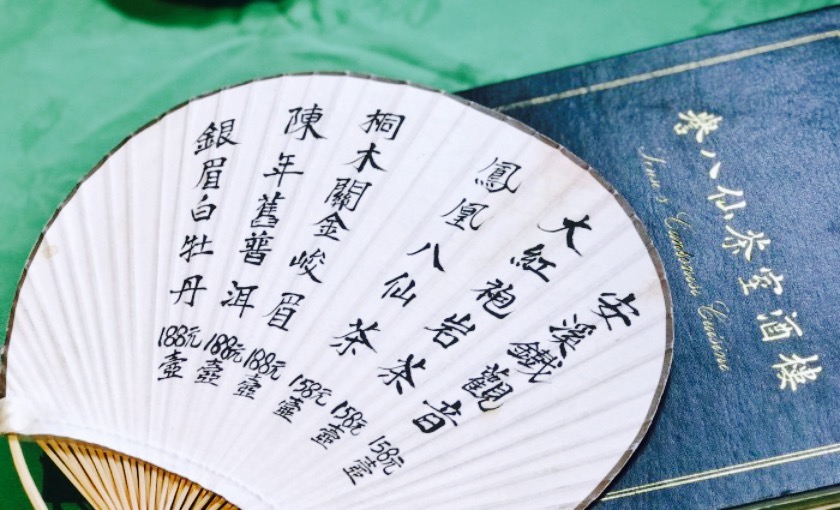 安溪鐵觀音 158元壺
大紅袍岩茶 158元壺
鳳凰八仙茶 158元壺
桐木關金峻眉 188元壺
陳年舊普洱 188元壺
銀眉白牡丹 188元壺
譽八仙茶室酒樓
Cantonese Cuisine